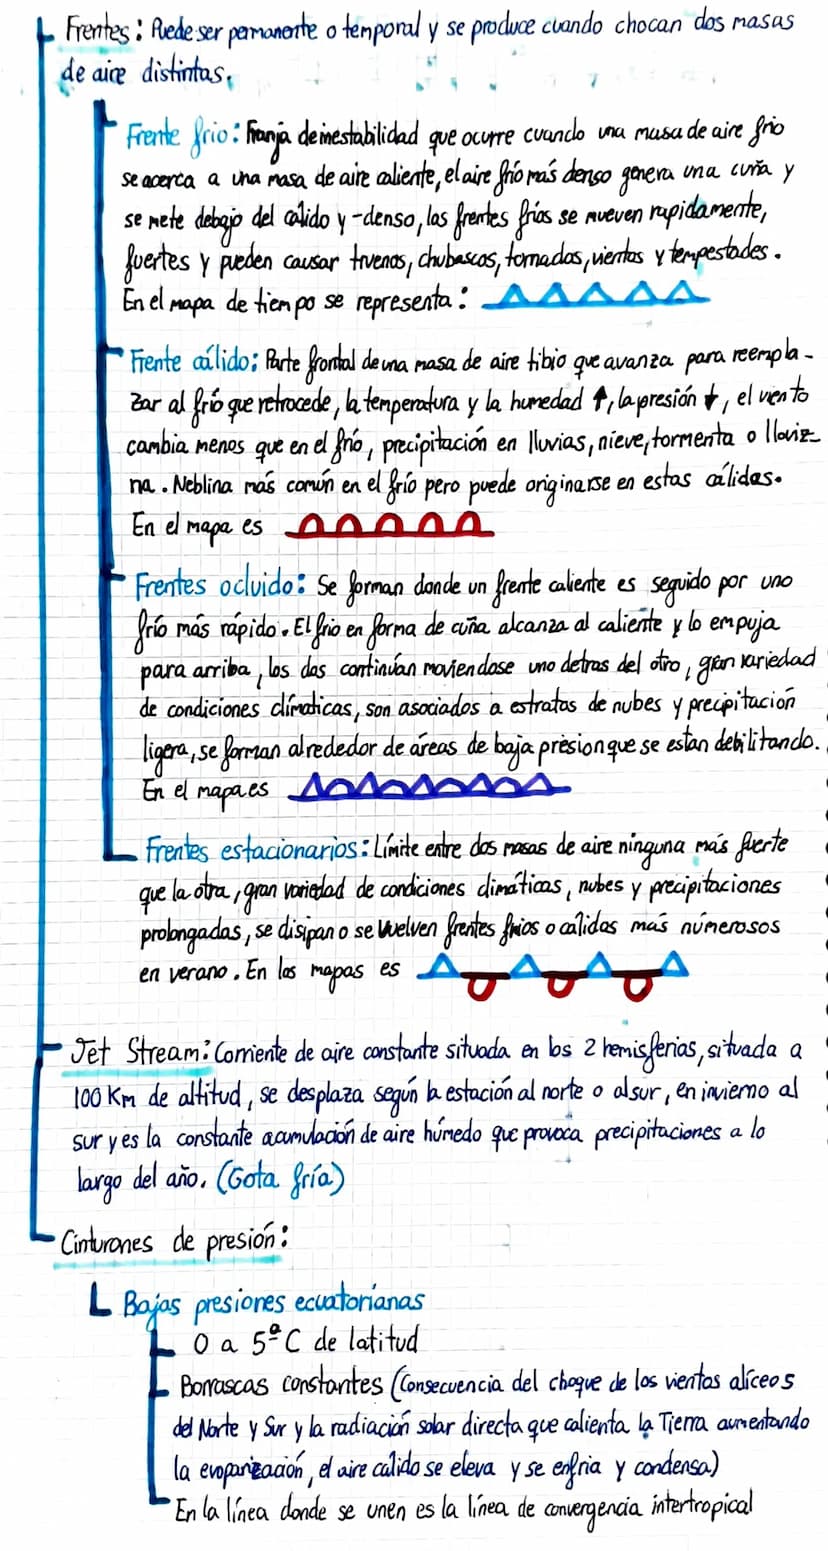 Frentes: Puede ser permanente o temporal y se produce cuando chocan dos masas
de aire distintas.
Frente frio: Franja de inestabilidad que ocurre cuando una masa de aire frio
se acerca a una masa de aire caliente, el aire frío más denso genera una cuña y
se mete debajo del cálido y -denso, los frentes fríos se mueven rapidamente,
fuertes y pueden causar truenos, chubascos, tornados, vientos y tempestades.
En el mapa de tiempo se representa:
Frente cálido: Parte frontal de una masa de aire tibio que avanza para reempla-
zar al frío que retrocede, la temperatura y la humedad ↑, la presión ↓, el viento
cambia menos que en el frío, precipitación en lluvias, nieve, tormenta o lloviz
na. Neblina más común en el frío pero puede originarse en estas cálidas.
En el mapa es
Frentes ocluido: Se forman donde un frente caliente es seguido por uno
frío más rápido. El frio en forma de cuña alcanza al caliente y lo empuja
para arriba, los dos continúan moviendose uno detras del otro, gran variedad
de condiciones climáticas, son asociados a estratos de nubes y precipitación
ligera, se forman alrededor de áreas de baja presion que se estan debilitando.
En el mapa es
Frentes estacionarios: Límite entre dos masas de aire ninguna más fuerte
que la otra, gran variedad de condiciones climáticas, nubes y precipitaciones
prolongadas, se disipan o se vuelven frentes frios o calidos más númerosos
en verano. En los mapas es
Jet Stream: Corriente de aire constante situada en los 2 hemisferios, situada a
100 Km de altitud, se desplaza según la estación al norte o al sur, en invierno al
sur y es la constante acumulación de aire húmedo que provoca precipitaciones a lo
largo del año. (Gota fría)
Cinturones de presión:
Bajas presiones ecuatorianas
0 a 5º C de latitud
Borrascas constantes (Consecuencia del choque de los vientos alíceos
del Norte y Sur y la radiación solar directa que calienta la Tierra aumentando
la evoparización, el aire cálido se eleva y se enfria y condensa)
En la línea donde se unen es la línea de convergencia intertropical